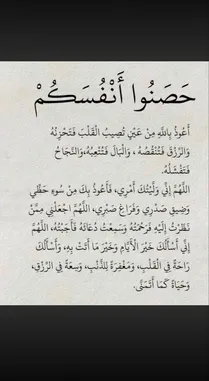 حَصَنُوا أَنْفُسَكُمْ
أَعُوذُ بِاللَّهِ مِنْ عَيْنٍ تُصِيبُ الْقَلْبَ فَتَحْزِنُهُ
وَالرِّزْقَ فَتُنْقِصُهُ ، وَالْبَالَ فَتُتْعِبُهُ،وَالنَّجَاحُ
فَتَفْشَلُهُ.
اللَّهُمَّ إِنِّي وَلَّيْتُكَ أَمْرِي، فَأَعُوذُ بِكَ مِنْ سُوءِ حَظِّي
وَضِيقِ صَدْرِي وَفَرَاغِ صَبْرِي، اللَّهُمَّ اجْعَلْنِي مِمَّنْ
نَظَرْتَ إِلَيْهِ فَرَحِمْتَهُ وَسَمِعْتَ دُعَائَهُ فَأَجَبْتَهُ، اللَّهُمَّ
إِنِّي أَسْأَلُكَ خَيْرَ الْأَيَّامِ وَخَيْرَ مَا أَتَتْ بِهِ، وَأَسْأَلُكَ
رَاحَةً فِي الْقَلْبِ، وَمَغْفِرَةً لِلذَّنْبِ، وَسِعَةً فِي الرِّزْقِ،
وَحَيَاةً كَمَا أَتَمَنَّى.